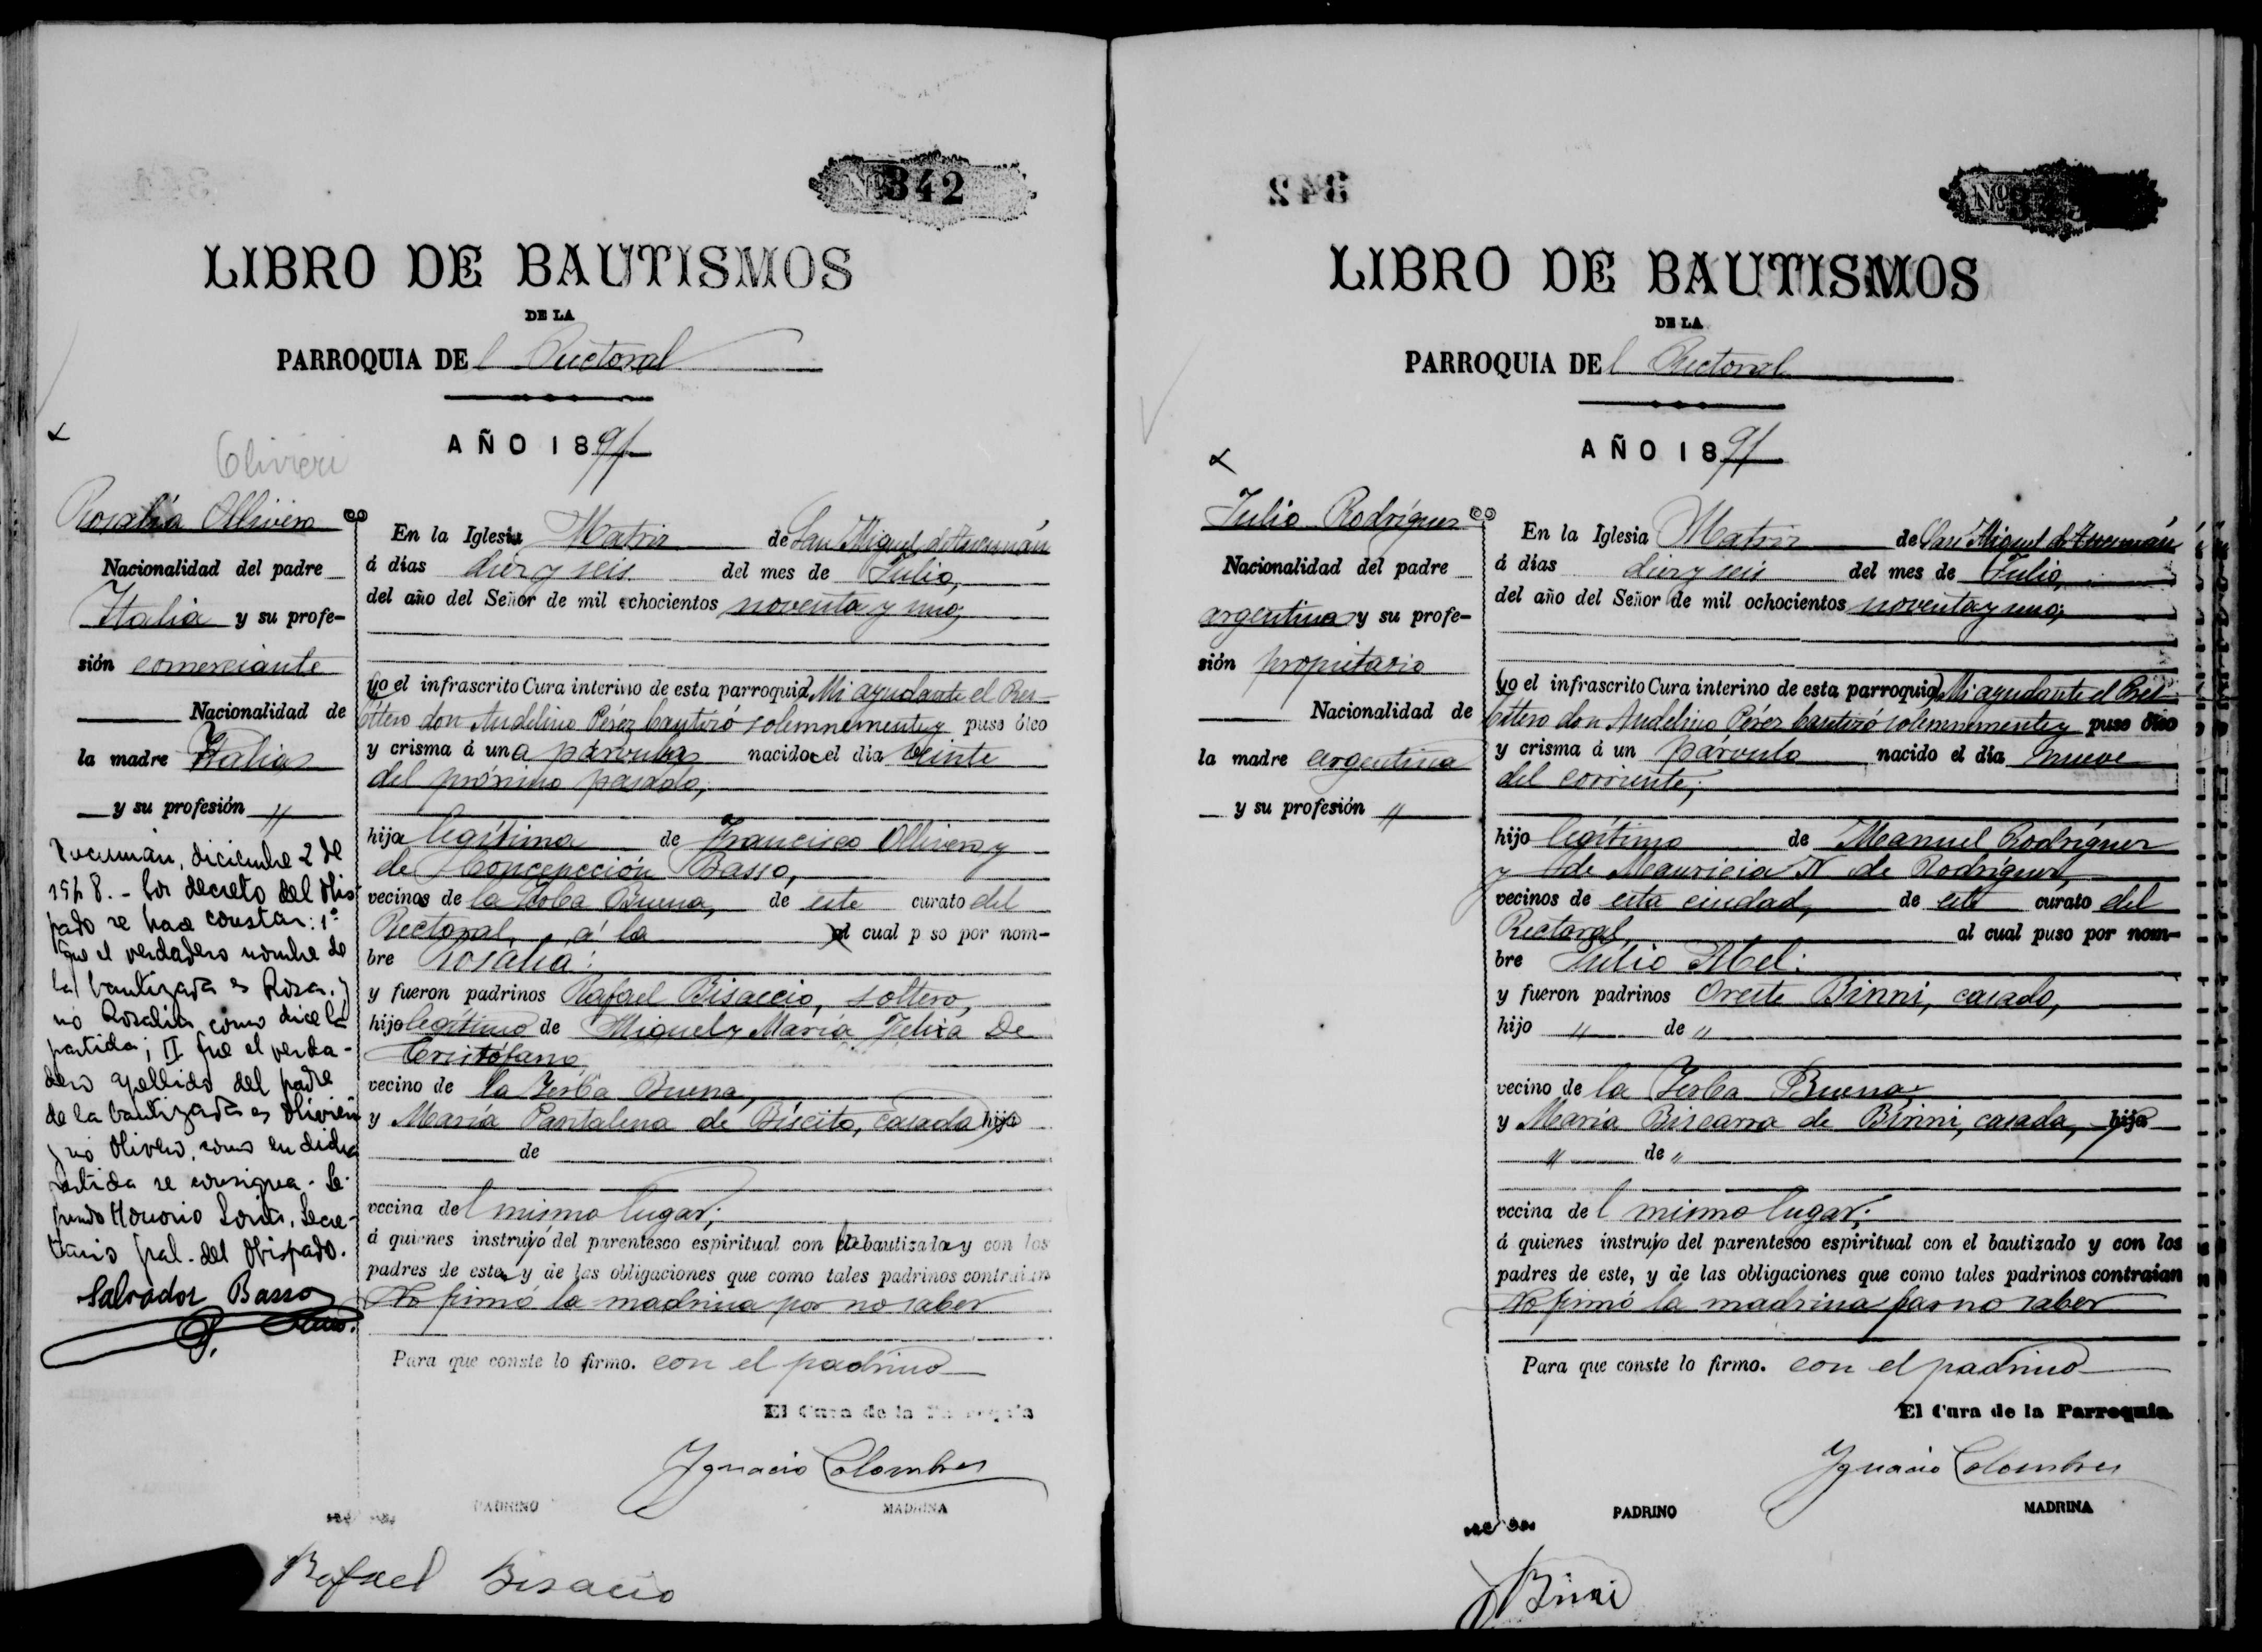 Nº 342
LIBRO DE BAUTISMOS
DE LA
PARROQUIA DEl Rectoral
AÑO 1891
Olivieri
Rosalía Ollivero
Nacionalidad del padre
Italia y su profe-
sión comerciante
Nacionalidad de
la madre Italia
y su profesión "
Tucumán, diciembre 2 de
1918.- Por decreto del Obis
pado se hace constar: 1º
que el verdadero nombre de
la bautizada es Rosa y
no Rosalía como dice la
partida; II que el verda-
dero apellido del padre
de la bautizada es Olivieri
y no Olivero, como en dicha
partida se consigna.- Se-
gundo Honorio Secre-
tario gral. del Obispado.
Salvador Basso
En la Iglesia Matriz de San Miguel de Tucumán
á días diez y seis del mes de Julio,
del año del Señor de mil ochocientos noventa y uno;
yo el infrascrito Cura interino de esta parroquia Mi ayudante el Pres-
bítero don Audelino Pérez bautizó solemnemente y puso óleo
y crisma á una párvula nacida el día veinte
del próximo pasado;
hija legítima de Francisco Ollivero y
de Concepcción Basso,
vecinos de la Yerba Buena, de este curato del
Rectoral, á la al cual puso por nom-
bre Rosalía:
y fueron padrinos Rafael Bisaccio, soltero,
hijo legítimo de Miguel y María Felixa De
Cristófano
vecino de la Yerba Buena,
y María Pantalena de Biscito, casada hija
de
vecina del mismo lugar;
á quienes instruyó del parentesco espiritual con la bautizada y con los
padres de esta, y de las obligaciones que como tales padrinos contraian
No firmó la madrina por no saber
Para que conste lo firmo. con el padrino
El Cura de la Parroquia
Ignacio Colombres
PADRINO MADRINA
Rafael Bisacio
342
Nº 343
LIBRO DE BAUTISMOS
DE LA
PARROQUIA DEl Rectoral
AÑO 1891
Julio Rodríguez
Nacionalidad del padre
argentina y su profe-
sión propietario
Nacionalidad de
la madre argentina
y su profesión "
En la Iglesia Matriz de San Miguel de Tucumán
á días diez y seis del mes de Julio,
del año del Señor de mil ochocientos noventa y uno;
yo el infrascrito Cura interino de esta parroquia Mi ayudante el Pres-
bítero don Audelino Pérez bautizó solemnemente y puso óleo
y crisma á un párvulo nacido el día nueve
del corriente;
hijo legítimo de Manuel Rodríguez
y de Mauricia N de Rodríguez,
vecinos de esta ciudad, de este curato del
Rectoral al cual puso por nom-
bre Julio Abel:
y fueron padrinos Oreste Binni, casado,
hijo " de "
vecino de la Yerba Buena
y María Biscarra de Binni, casada, hija
" de "
vecina del mismo lugar;
á quienes instruyo del parentesco espiritual con el bautizado y con los
padres de este, y de las obligaciones que como tales padrinos contraian
No firmó la madrina por no saber
Para que conste lo firmo. con el padrino
El Cura de la Parroquia
Ignacio Colombres
PADRINO MADRINA
Binni